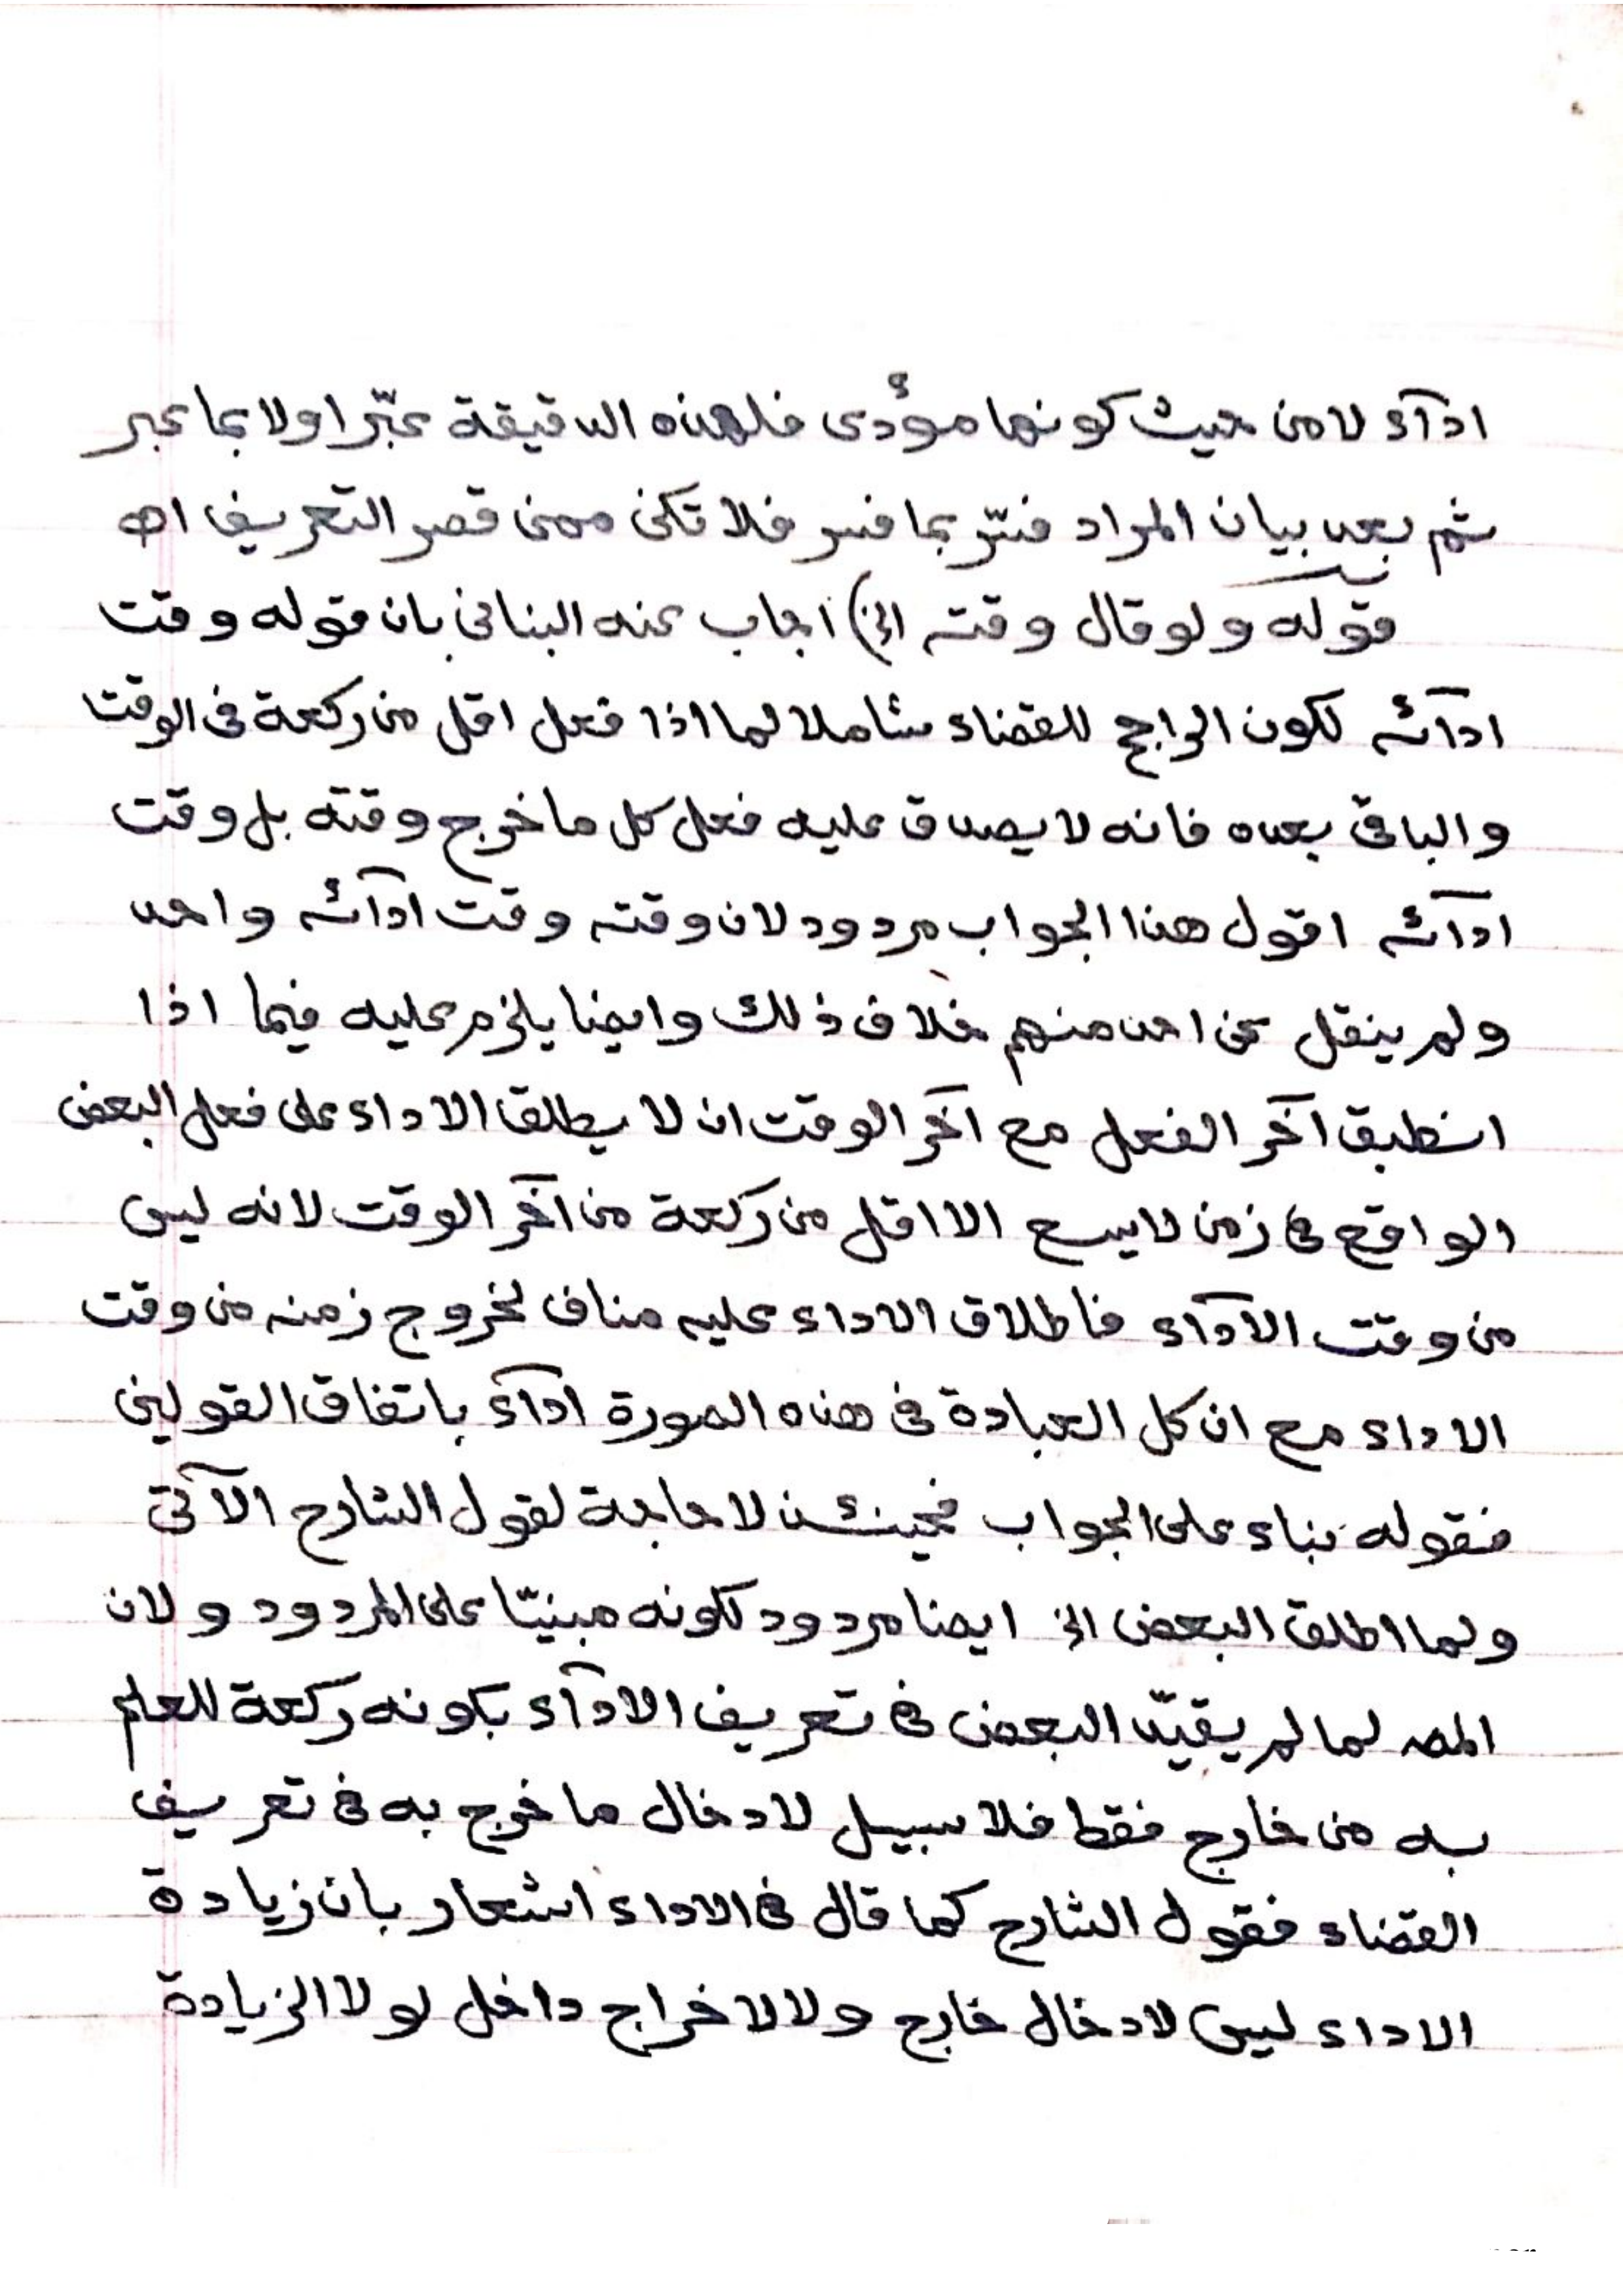 ادآء لا من حيث كونها مؤدى فلهذه الدقيقة عبّر اولا بما عبر
ثم بعد بيان المراد فسّر بما فسر فلا تكن ممن قصر التعريف اه
قوله ولو قال وقته الخ) اجاب عنه البنانى بان قوله وقت
ادآئه لكون الراجح للقضاء شاملا لما اذا فعل اقل من ركعة فى الوقت
والباقى بعده فانه لا يصدق عليه فعل كل ما خرج وقته بل وقت
ادآئه اقول هذا الجواب مردود لان وقته وقت ادآئه واحد
ولم ينقل عن احد منهم خلاف ذلك وايضا يلزم عليه فيما اذا
انطبق آخر الفعل مع آخر الوقت ان لا يطلق الاداء على فعل البعض
الواقع فى زمن لا يسع الا اقل من ركعة من آخر الوقت لانه ليس
من وقت الادآء فاطلاق الاداء عليه مناف لخروج زمنه من وقت
الاداء مع ان كل العبادة فى هذه الصورة ادآء باتفاق القولين
فقوله بناء على الجواب فحينئذ لا حاجة لقول الشارح الآتى
ولما اطلق البعض الخ ايضا مردود لكونه مبنيّا على المردود ولان
المص لما لم يقيّد البعض فى تعريف الادآء بكونه ركعة للعلم
به من خارج فقط فلا سبيل لادخال ما خرج به فى تعريف
القضاء فقول الشارح كما قال فى الاداء اشعار بان زيادة
الاداء ليس لادخال خارج ولا لاخراج داخل لولا الزيادة